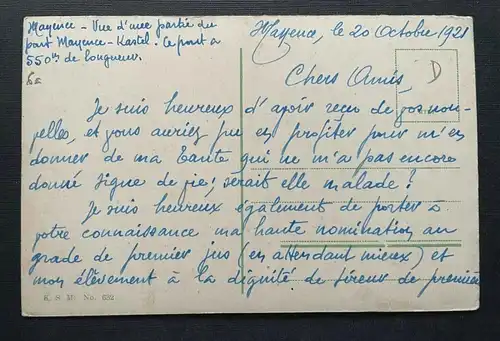 Mayence – Vue d'une partie du
port Mayence-Kastel. Ce pont a
550m de longueur.
Mayence, le 20 Octobre 1921
D
Chers Amis,
Je suis heureux d'avoir reçu de vos nou-
velles, et vous auriez pu en profiter pour m'en
donner de ma Tante qui ne m'a pas encore
donné signe de vie; serait elle malade?
Je suis heureux également de porter à
votre connaissance ma haute nomination au
grade de premier jus (en attendant mieux) et
mon élèvement à la dignité de tireur de première
K. S. M. No. 632